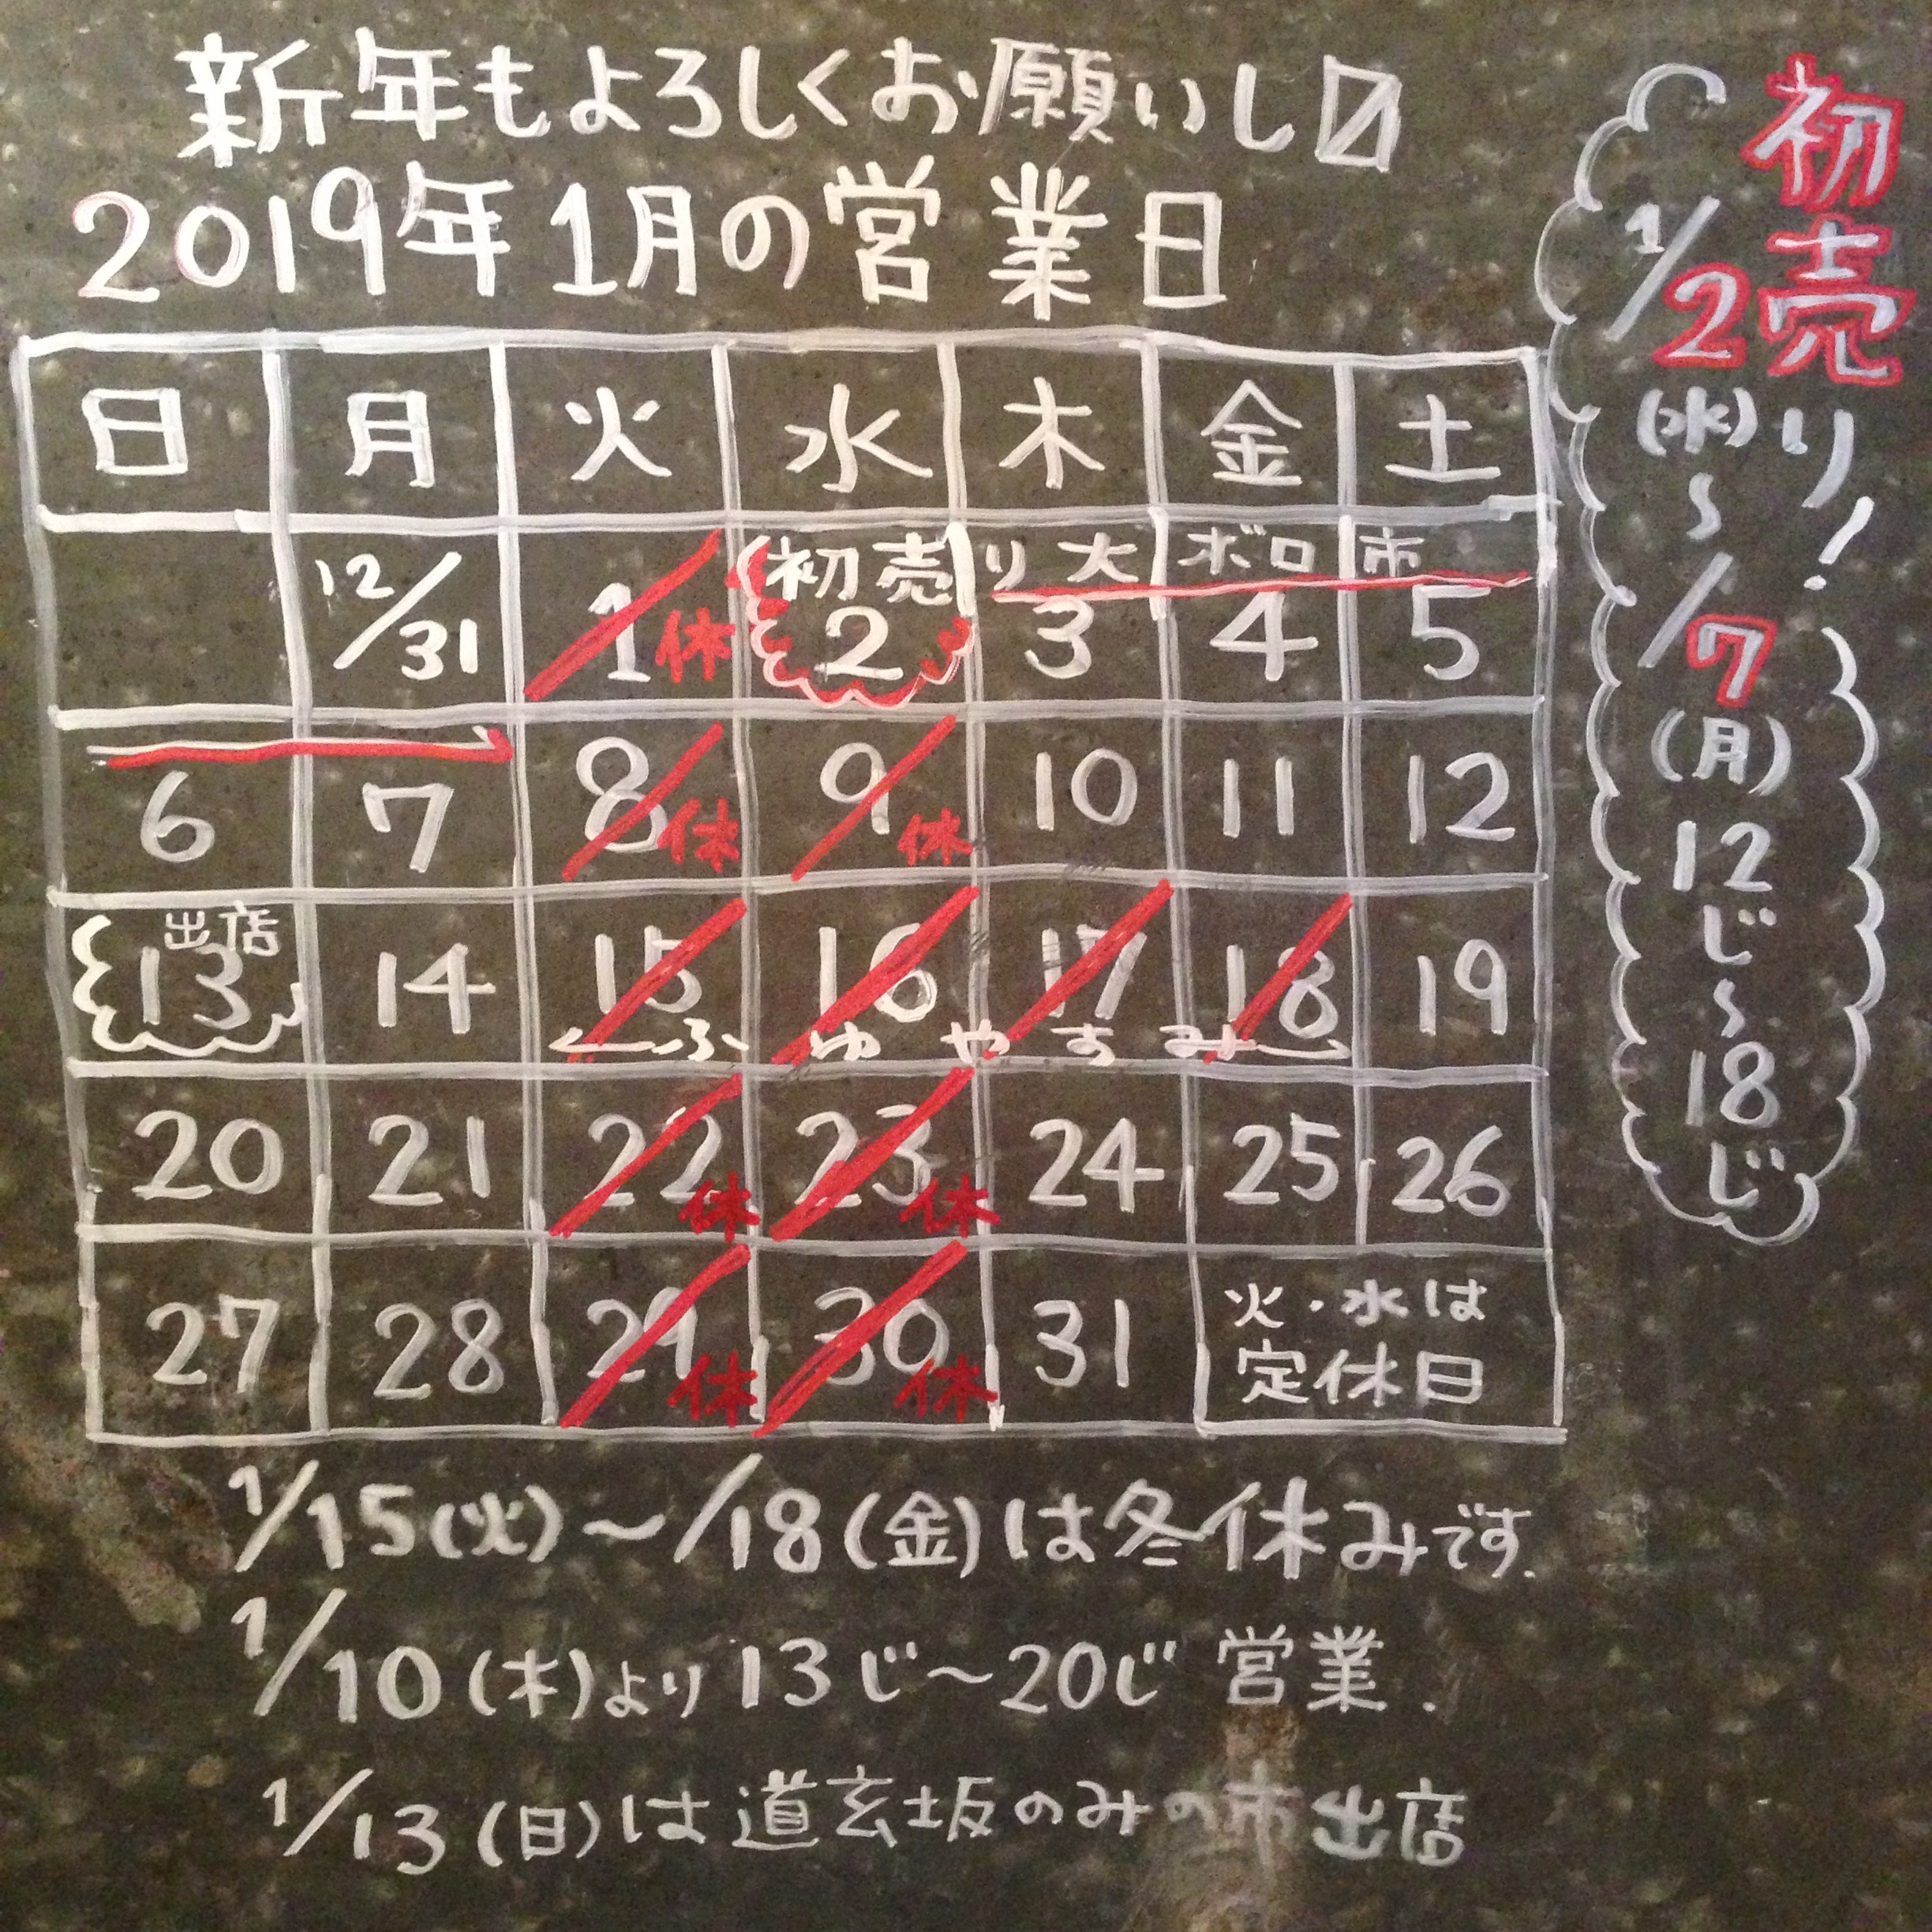 新年もよろしくお願いし〼
2019年1月の営業日
日 月 火 水 木 金 土
初売り大ボロ市
12/31 1休 2 3 4 5
6 7 8休 9休 10 11 12
出店
13 14 15 16 17 18 19
←ふゆやすみ→
20 21 22休 23休 24 25 26
27 28 29休 30休 31
火・水は
定休日
1/15(火)〜/18(金)は冬休みです.
1/10(木)より13じ〜20じ営業.
1/13(日)は道玄坂のみの市出店
初売り!
1/2(水)〜/7(月)12じ〜18じ